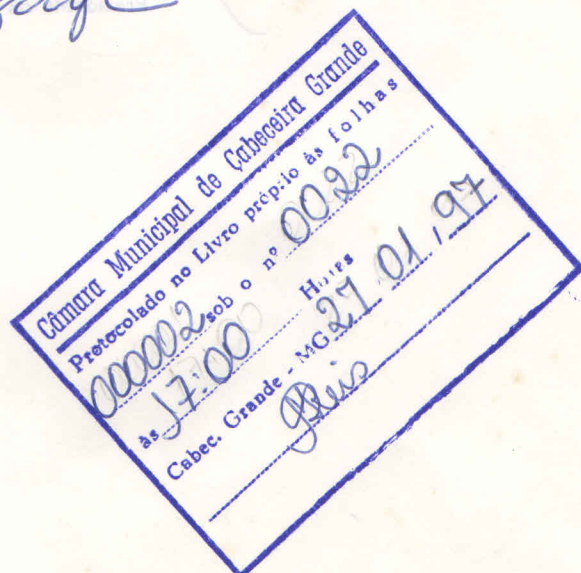 Câmara Municipal de Cabeceira Grande
Protocolado no Livro próprio às folhas
000002 sob o nº 0022
às 17:00 Horas
Cabec. Grande - MG 27 / 01 / 97